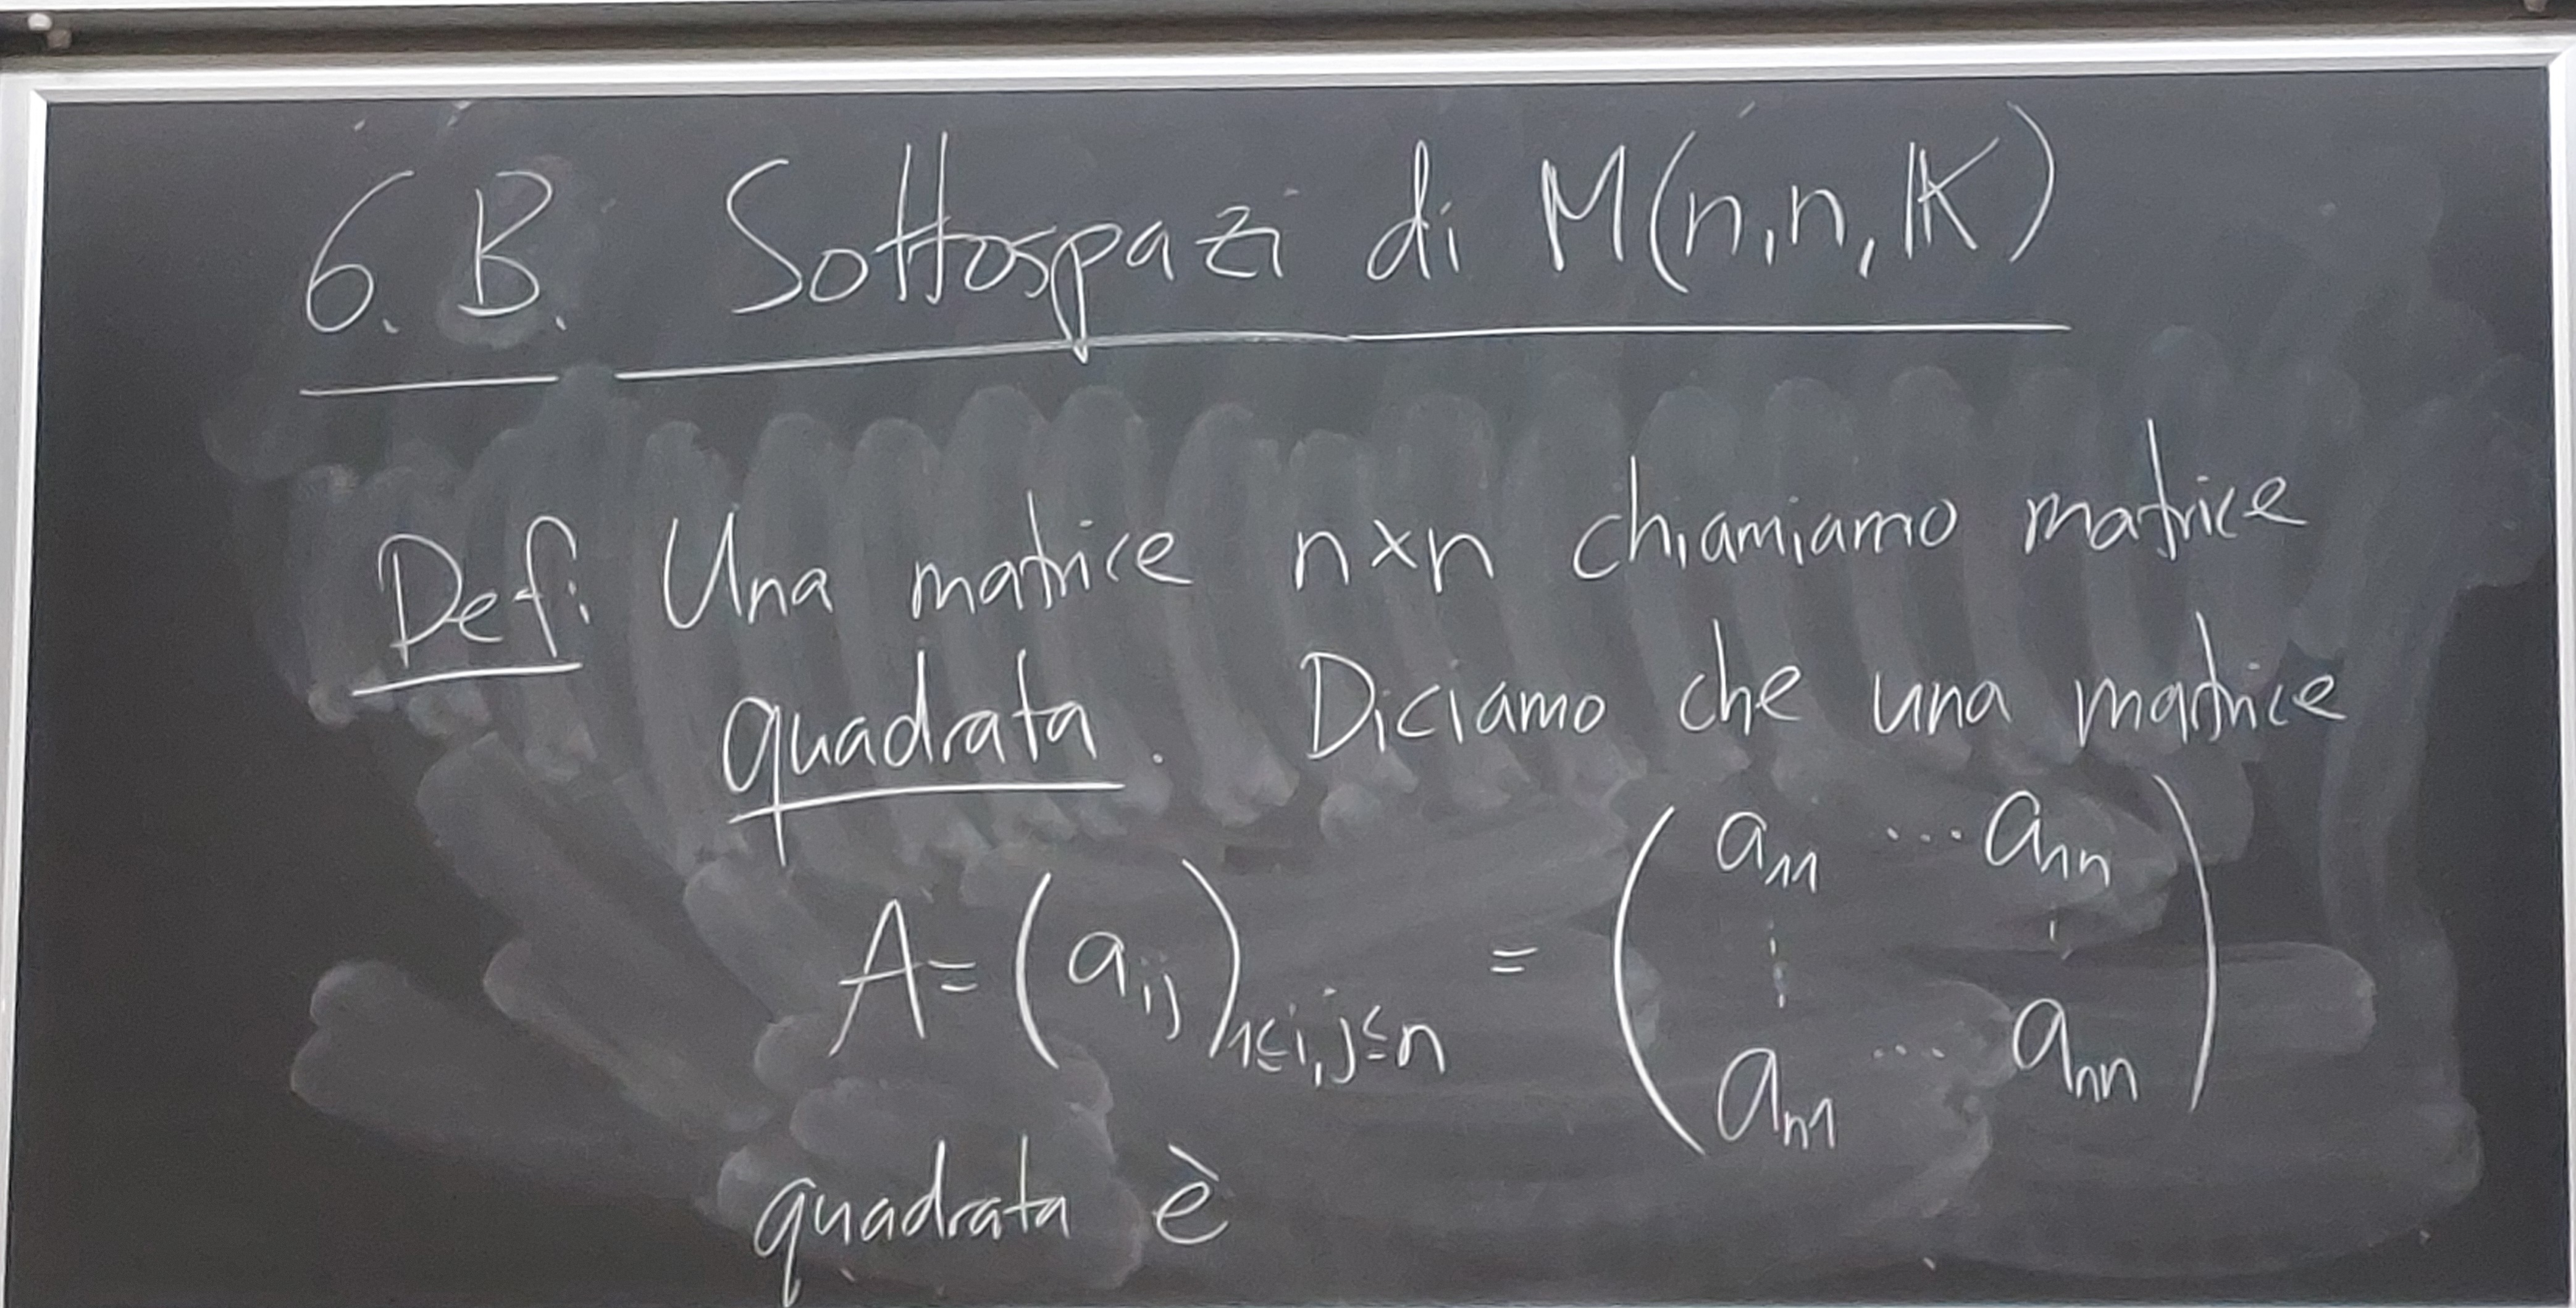 6.B. Sottospazi di M(n,n,𝕂)
Def: Una matrice n×n chiamiamo matrice
quadrata. Diciamo che una matrice
A=(a_{ij})_{1≤i,j≤n} = \begin{pmatrix} a_{11} & \cdots & a_{1n} \\ \vdots & & \vdots \\ a_{n1} & \cdots & a_{nn} \end{pmatrix}
quadrata è